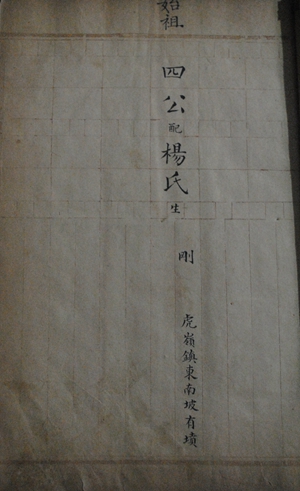 始祖
四公配楊氏生
剛
虎嶺鎮東南坡有墳